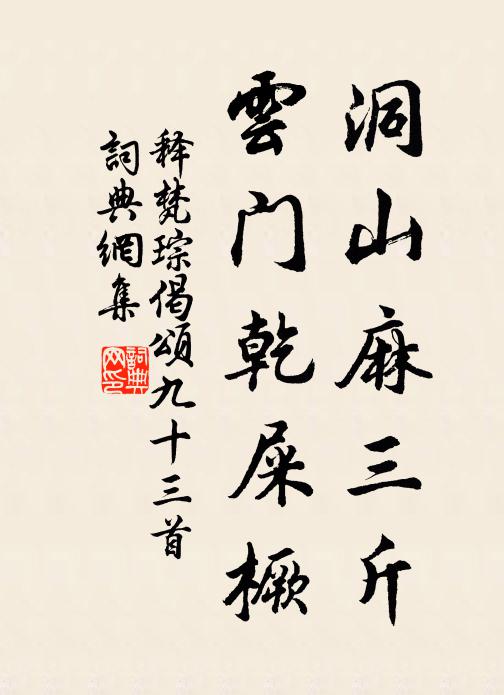 洞山麻三斤
雲门乾屎橛
释梵琮偈頌九十三首
詞典網集
詞典
网印